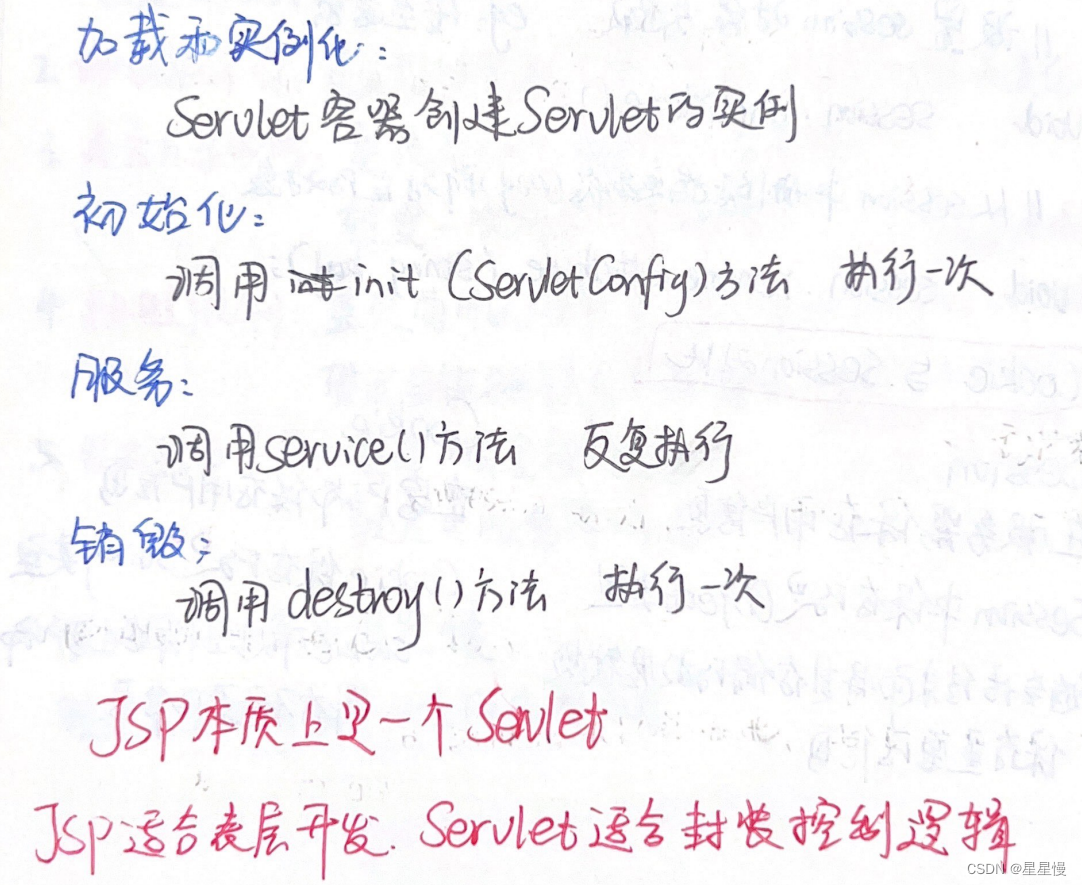 加载和实例化:
Servlet容器创建Servlet的实例
初始化:
调用init(ServletConfig)方法 执行一次
服务:
调用service()方法 反复执行
销毁:
调用destroy()方法 执行一次
JSP本质上是一个Servlet
JSP适合表层开发. Servlet适合封装控制逻辑
CSDN @星星慢